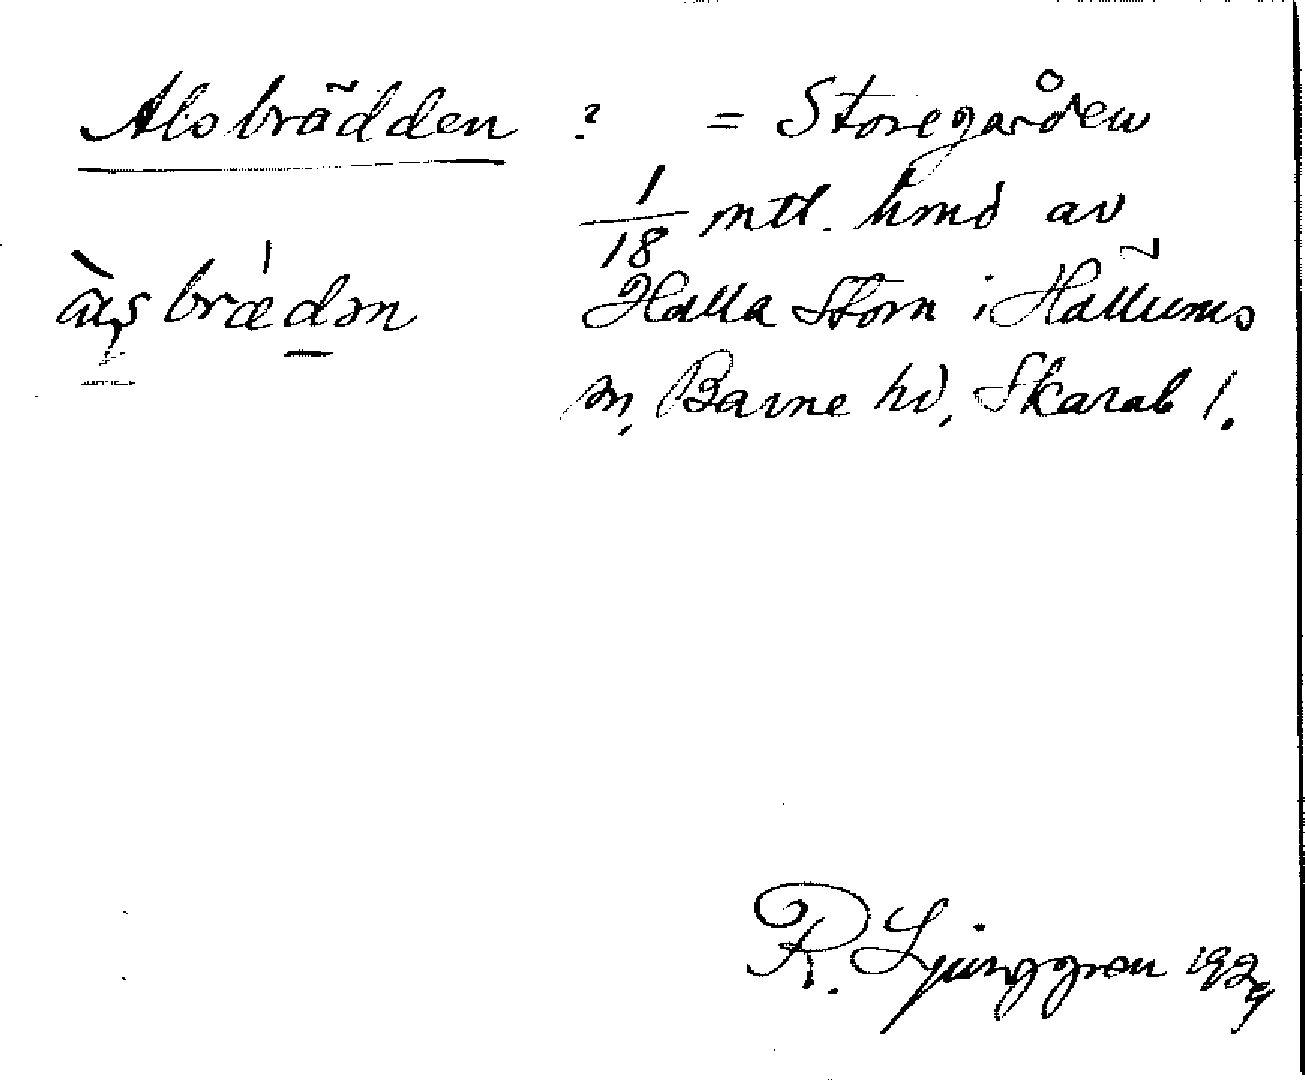 Alsbrädden ? = Storegården
1/18 mtl. hmd av
àɳsbræ'dən Halla Storn i Hällums
sn, Barne hd, Skarab l.
R. Ljunggren 1924